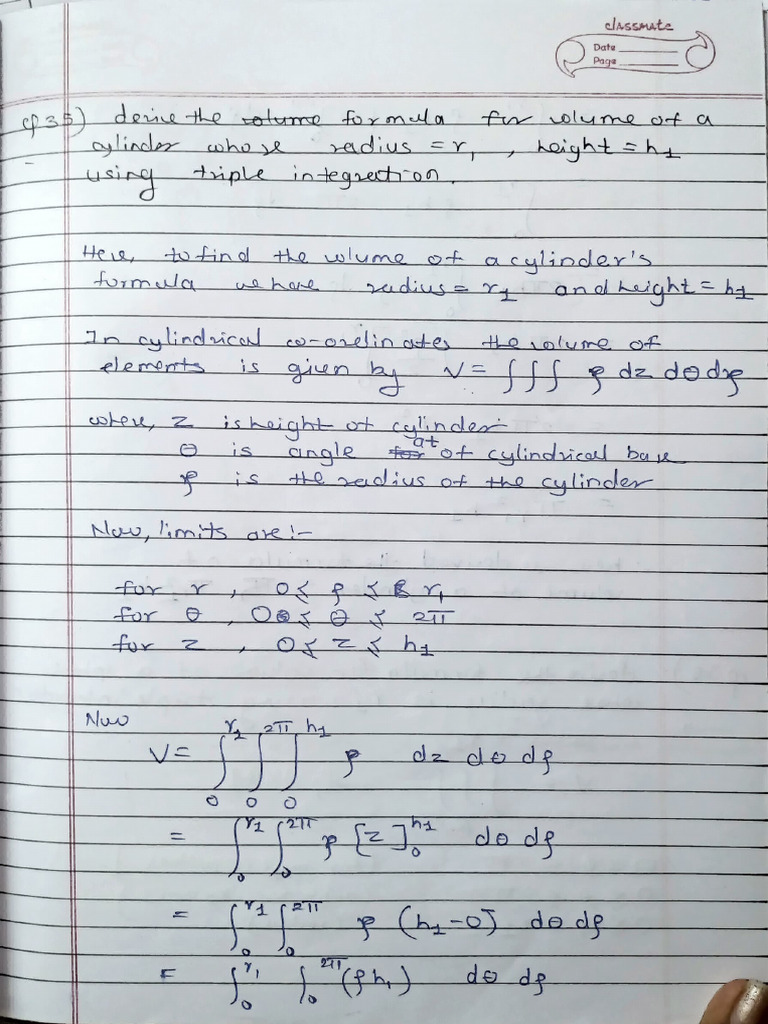 classmate
Date
Page
Q35) derive the volume formula for volume of a
cylinder whose radius = r₁ , height = h₁
using triple integration.
Here, to find the volume of a cylinder's
formula where radius = r₁ and height = h₁
In cylindrical co-ordinates the volume of
elements is given by V = ∫∫∫ ρ dz dθ dρ
where, z is height of cylinder
θ is angle for at of cylindrical base
ρ is the radius of the cylinder
Now, limits are :-
for r , 0 ≤ ρ ≤ r₁
for θ , 0 ≤ θ ≤ 2π
for z , 0 ≤ z ≤ h₁
Now
V = ∫₀^r₁ ∫₀^2π ∫₀^h₁ ρ dz dθ dρ
= ∫₀^r₁ ∫₀^2π ρ [z]₀^h₁ dθ dρ
= ∫₀^r₁ ∫₀^2π ρ (h₁-0) dθ dρ
= ∫₀^r₁ ∫₀^2π (ρ h₁) dθ dρ